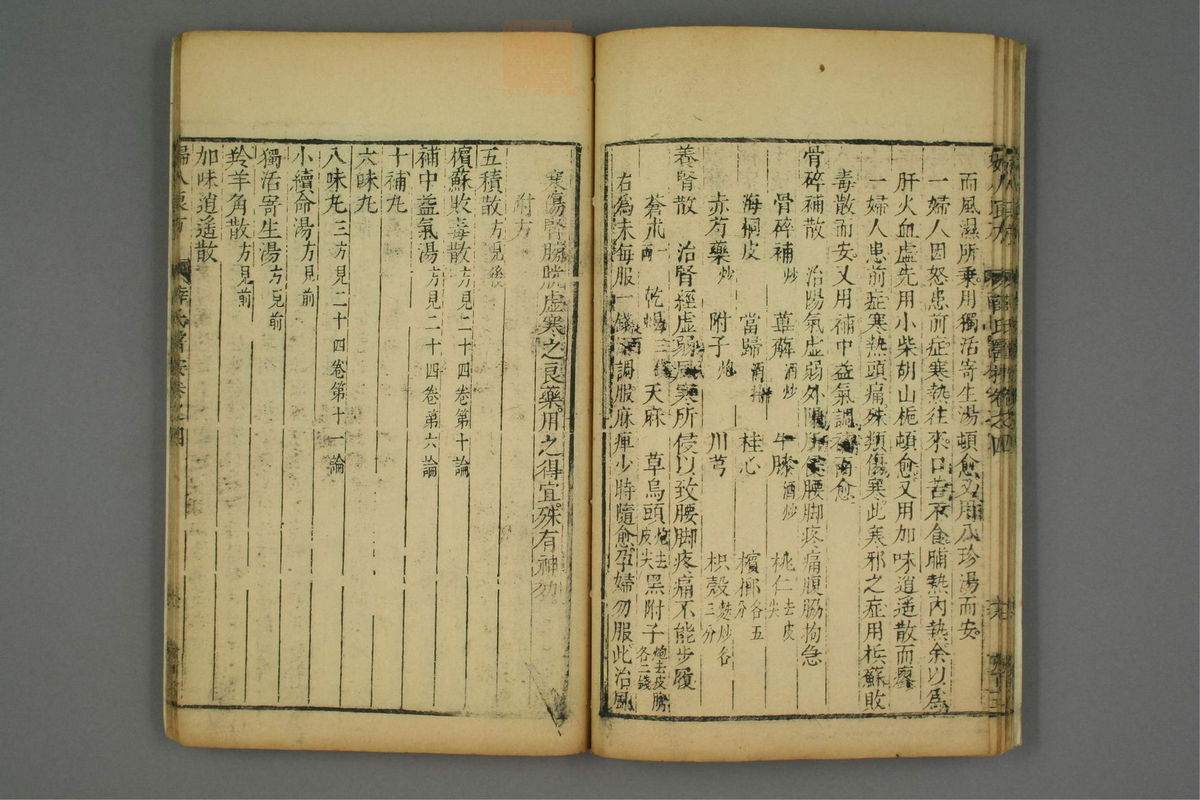 而風濕所乗用獨活寄生湯頓愈又用八珍湯而安
一婦人因怒患前症寒熱往來口苦不食脯熱內熱余以爲
肝火血虛先用小柴胡山梔頓愈又用加味逍遥散而瘳
一婦人患前症寒熱頭痛殊類傷寒此寒邪之症用梹蘇敗
毒散而安又用補中益氣調 愈
骨碎補散 治陽氣虛弱外 腰脚疼痛腹脇拘急
骨碎補炒 萆薢酒炒 牛膝酒炒 桃仁去皮尖
海桐皮 當歸酒 桂心 檳榔各五分
赤芍藥炒 附子炮 川芎 枳殻麩炒各三分
養腎散 治腎經虛弱風寒所侵以致腰脚疼痛不能步履
蒼朮一兩 乾蝎三 天麻 草烏頭炮去皮尖 黑附子炮去皮臍各二錢
右爲末每服一錢 酒調服麻痺少時隨愈孕婦勿服此治風
寒傷腎膀胱虛寒之良藥用之得宜殊有神効
附方
五積散方見後
檳蘇敗毒散方見二十四卷第十論
補中益氣湯方見二十四卷第六論
十補丸
六味丸
八味丸三方見二十四卷第十一論
小續命湯方見前
獨活寄生湯方見前
羚羊角散方見前
加味逍遥散
婦人良方 卷之四